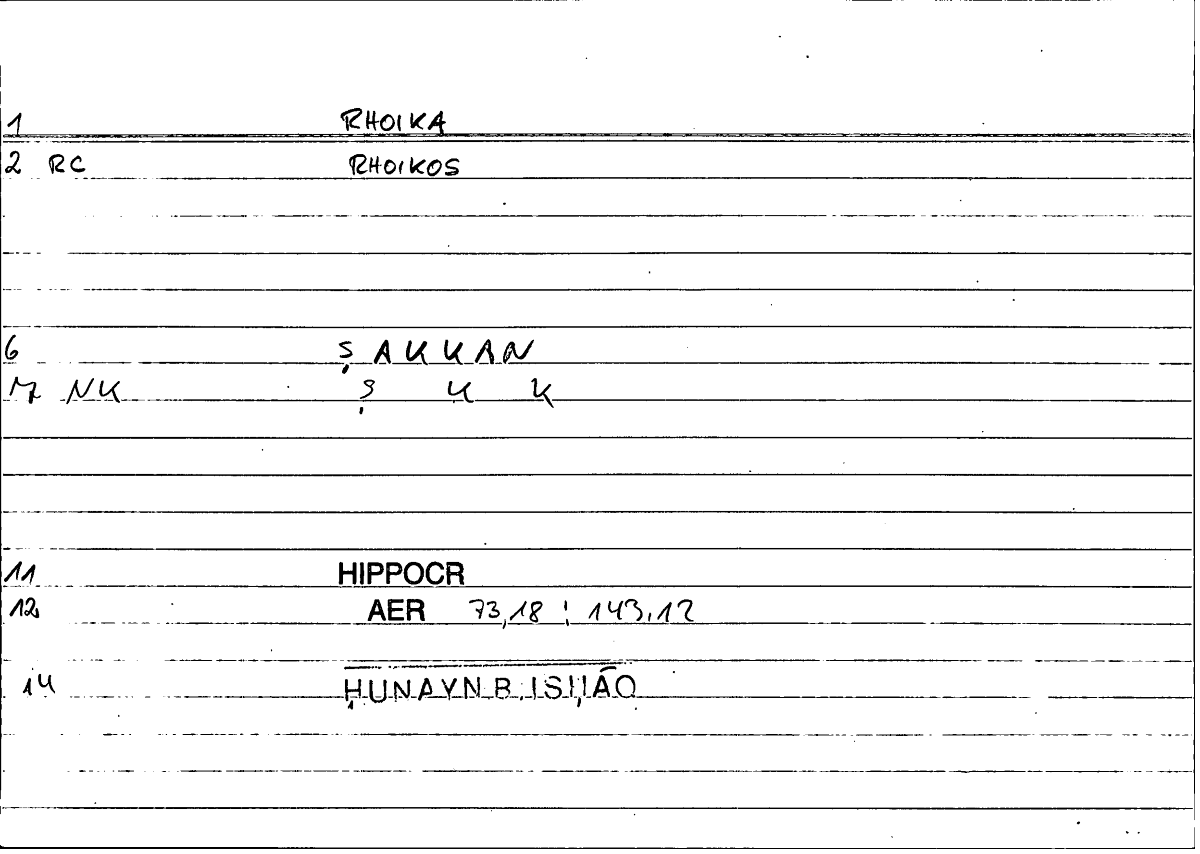 1 RHOIKA
2 RC RHOIKOS
6 Ṣ A K K A N
7 NK Ṣ K K
11 HIPPOCR
12 AER 73,18 ; 143,12
14 ḤUNAYN B. ISḤĀQ